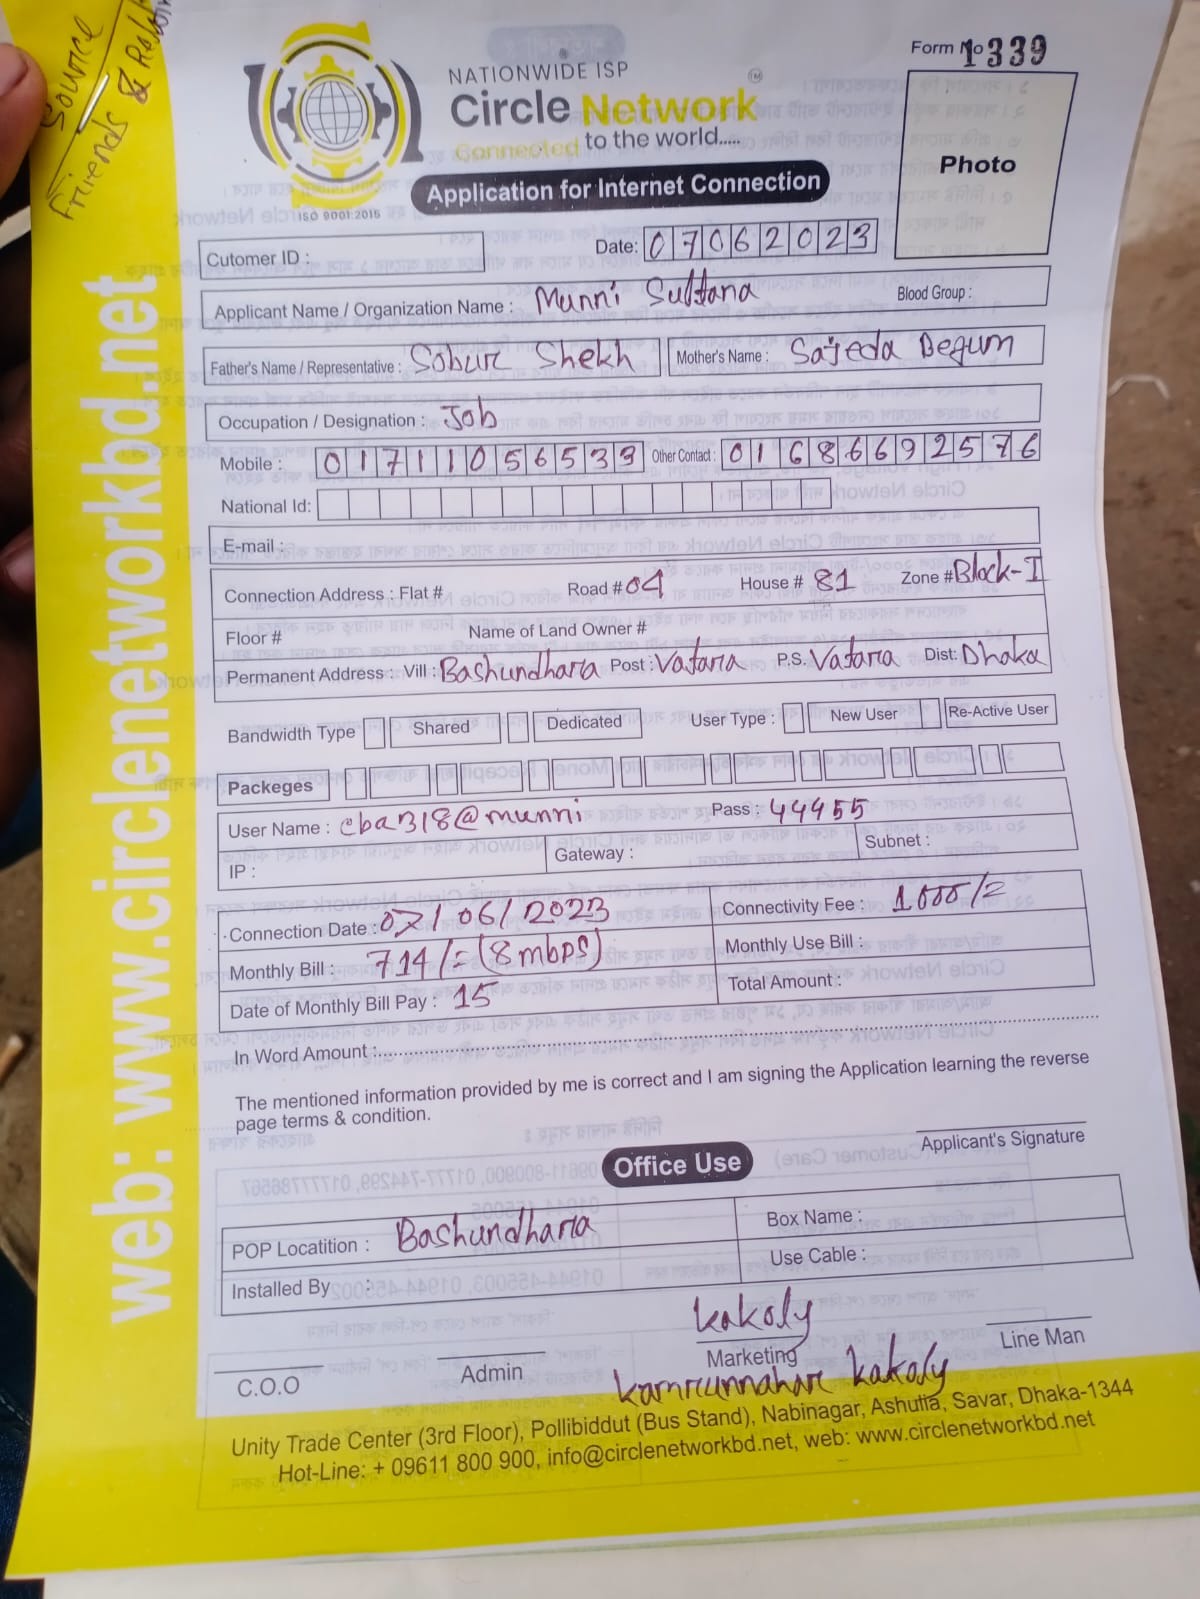 Source
Friends &
NATIONWIDE ISP
Circle Network TM
Connected to the world.....
ISO 9001:2015
Form No 1339
Photo
Application for Internet Connection
Cutomer ID :
Date: 07062023
Applicant Name / Organization Name : Munni Sultana Blood Group :
Father's Name / Representative : Sobur Shekh Mother's Name : Sajeda Begum
Occupation / Designation : Job
Mobile : 01711056533 Other Contact : 01686692576
National Id:
E-mail :
Connection Address : Flat # Road # 04 House # 81 Zone # Block-I
Floor # Name of Land Owner #
Permanent Address : Vill : Bashundhara Post : Vatara P.S. Vatara Dist: Dhaka
Bandwidth Type Shared Dedicated User Type : New User Re-Active User
Packeges
User Name : cba318@munni Pass : 44455
IP : Gateway : Subnet :
Connection Date : 07/06/2023 Connectivity Fee : 1000/=
Monthly Bill : 714/= (8 mbps) Monthly Use Bill :
Date of Monthly Bill Pay : 15 Total Amount :
In Word Amount :
The mentioned information provided by me is correct and I am signing the Application learning the reverse
page terms & condition.
Applicant's Signature
Office Use
POP Locatition : Bashundhara Box Name :
Installed By : Use Cable :
kakoly
C.O.O Admin Marketing Line Man
kamrunnahar kakoly
Unity Trade Center (3rd Floor), Pollibiddut (Bus Stand), Nabinagar, Ashulia, Savar, Dhaka-1344
Hot-Line: + 09611 800 900, info@circlenetworkbd.net, web: www.circlenetworkbd.net
web: www.circlenetworkbd.net